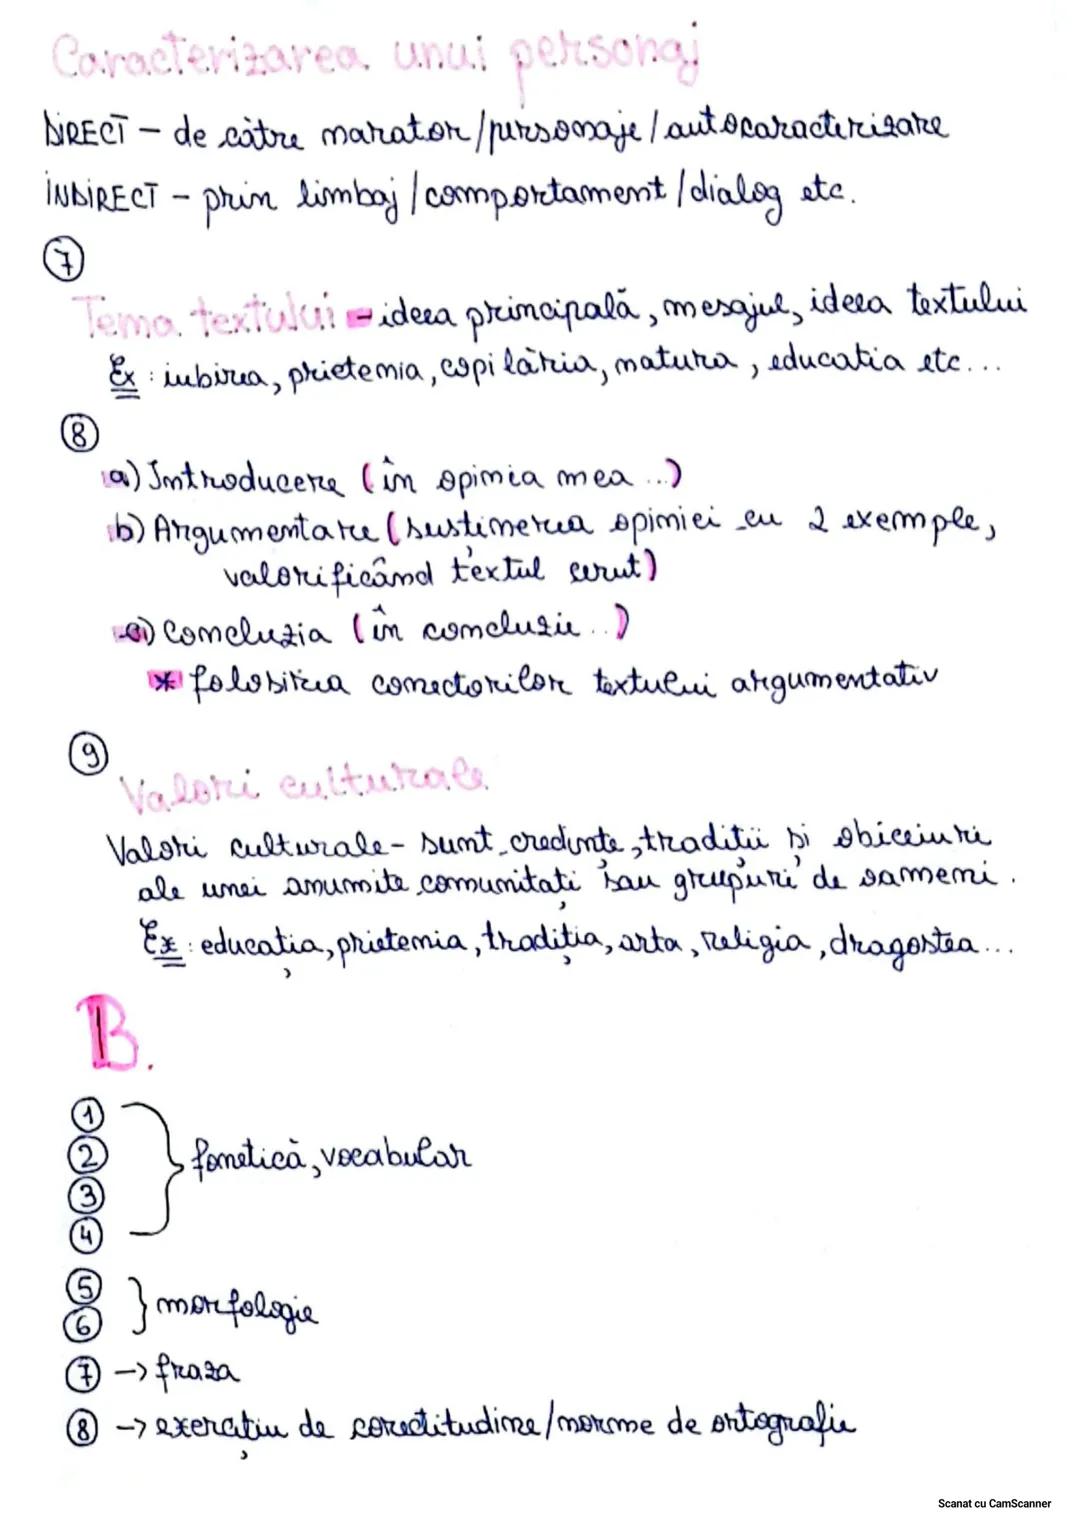 Caracterizarea unui personaj
DIRECT – de către narator/personaje/autocaracterizare
INDIRECT – prin limbaj/comportament/dialog etc.
7
Tema textului – ideea principală, mesajul, ideea textului
Ex: iubirea, prietenia, copilăria, natura, educatia etc...
8
a) Introducere (în opinia mea ...)
b) Argumentare (susținerea opiniei cu 2 exemple,
valorificând textul cerut)
c) Concluzia (în concluzie ...)
* folosirea conectorilor textului argumentativ
9
Valori culturale
Valori culturale - sunt credințe, tradiții și obiceiuri
ale unei anumite comunități sau grupuri de oameni.
Ex: educația, prietenia, tradiția, arta, religia, dragostea...
B.
1
2 } fonetică, vocabular
3
4
5 } morfologie
6
7 -> fraza
8 -> exercițiu de corectitudine/norme de ortografie
Scanat cu CamScanner